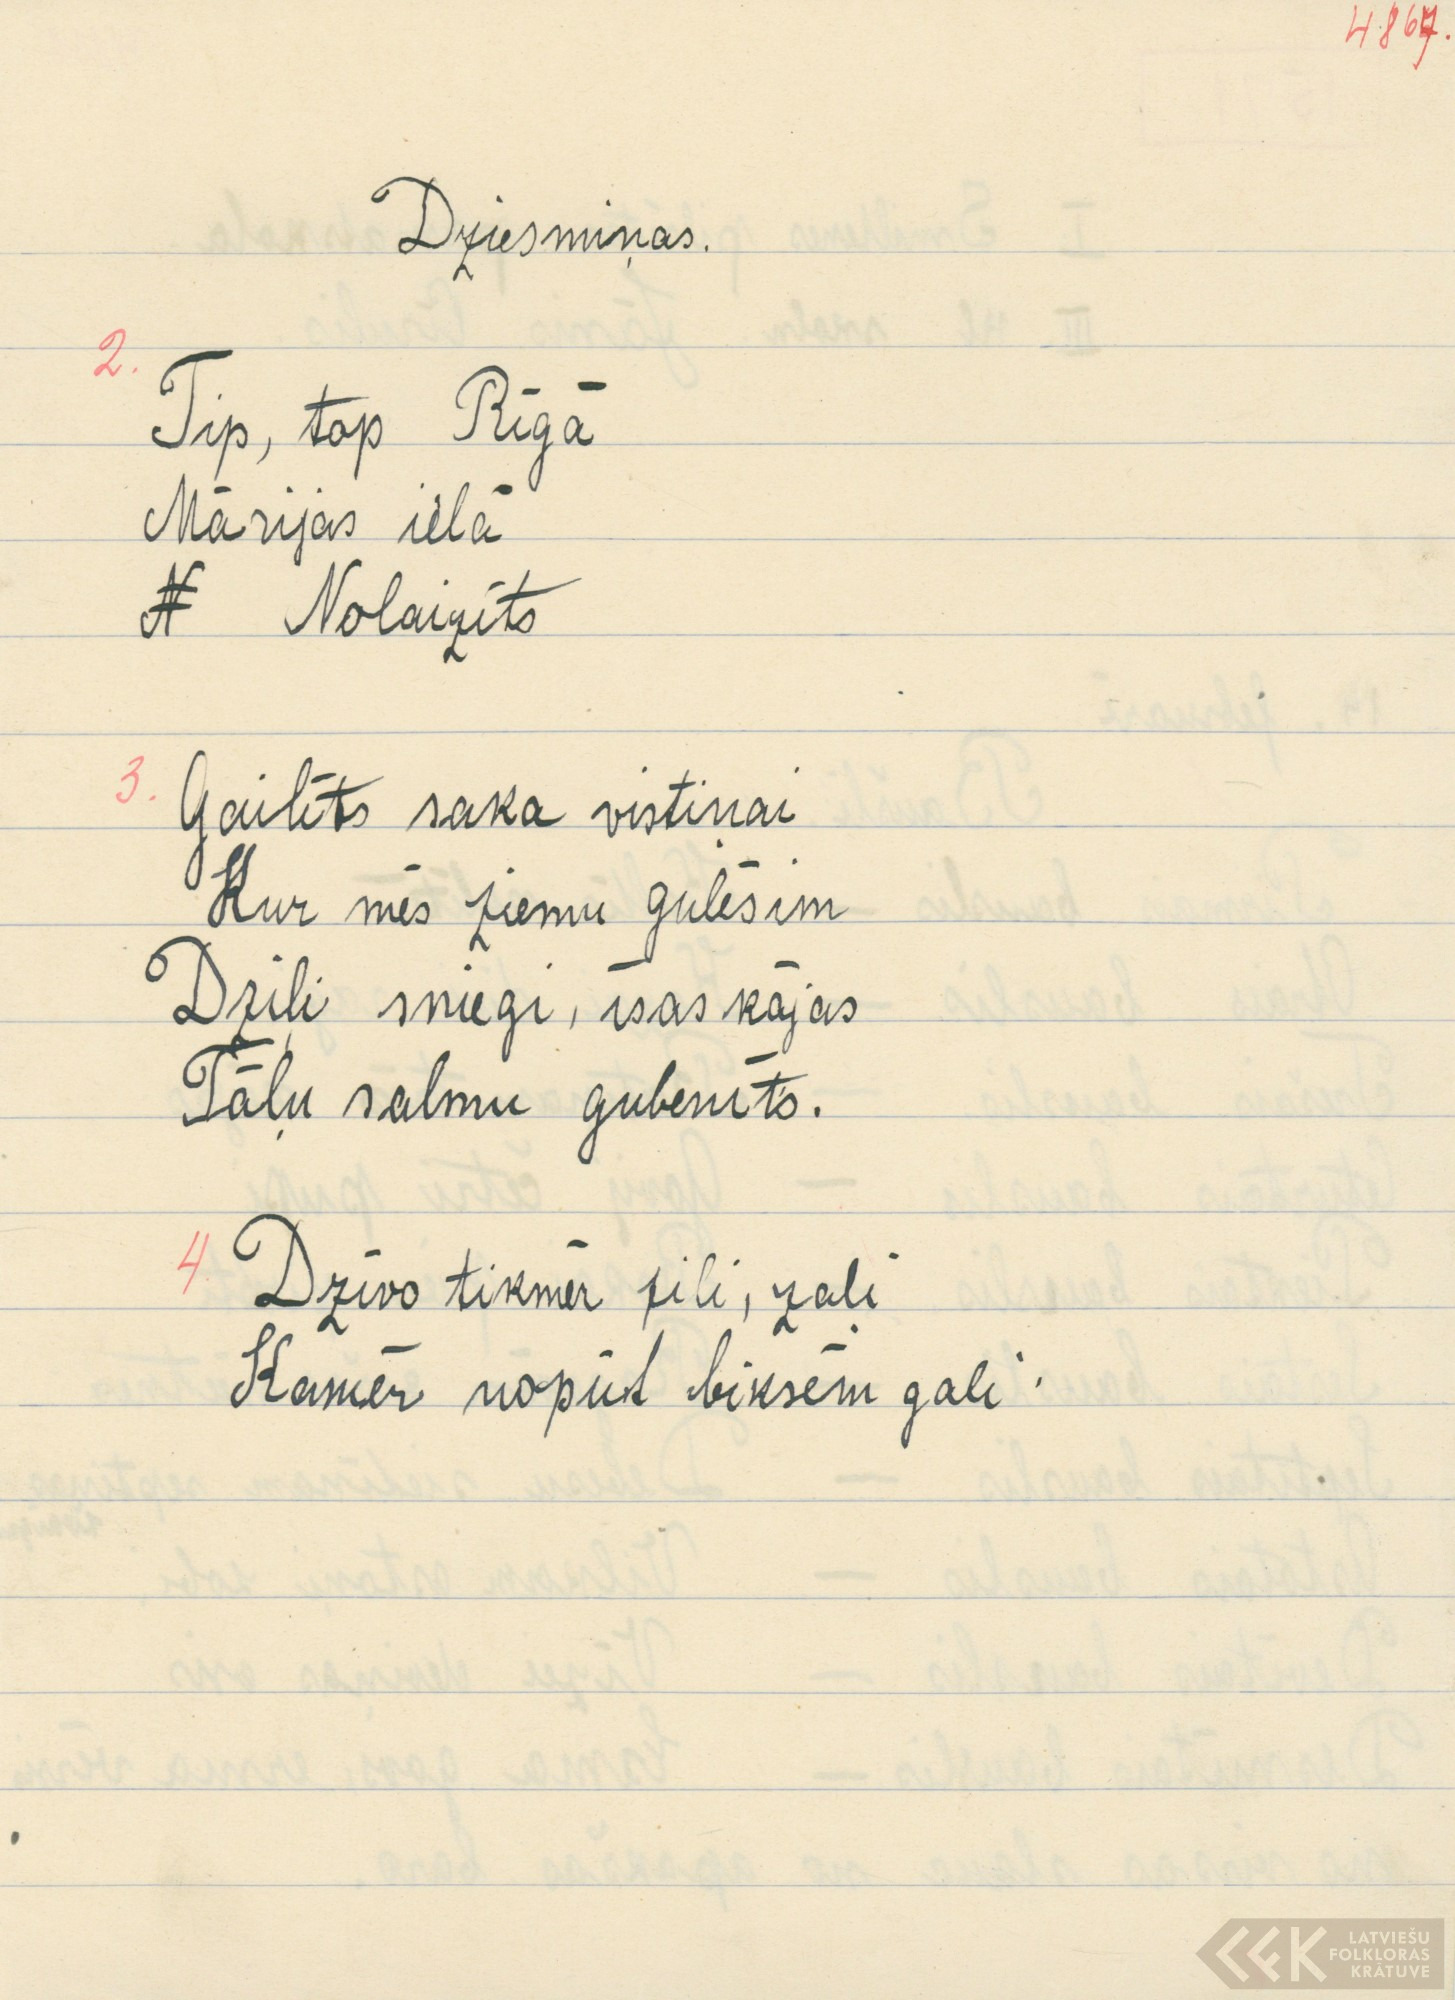 4867.
Dziesmiņas.
2.
Tip, top Rīgā
Mārijas ielā
N Nolaizīts
3. Gailīts saka vistiņai
Kur mēs ziemu gulēsim
Dziļi sniegi, īsas kājas
Tāļu salmu gubenīts.
4 Dzīvo tikmēr zili, zaļi
Kamēr nopūt biksēm gali.
LATVIEŠU
FOLKLORAS
KRĀTUVE